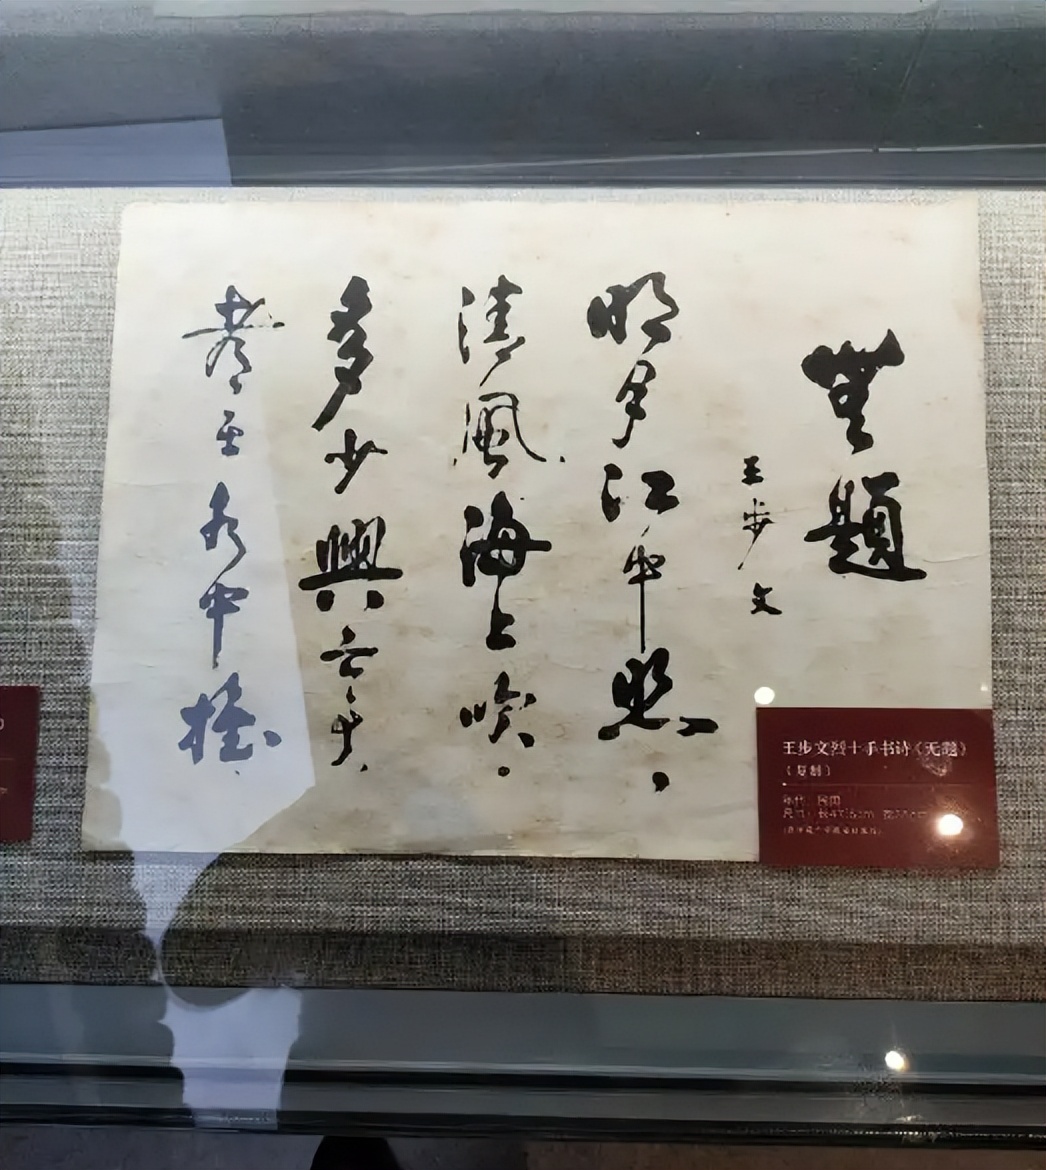 無題
王步文
明月江中照。
清風海上吹。
多少興亡事,
水中
王步文烈士手书诗《无题》
(复制)
年代:民国
尺寸:长